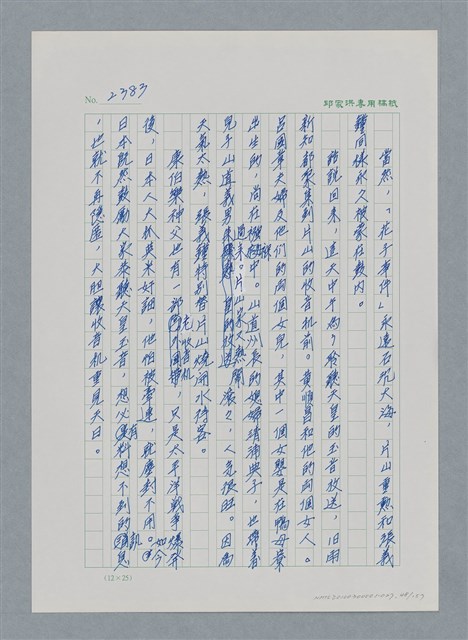 No. 2383
邱家洪專用稿紙
當然,「花子事件」永遠石沉大海,片山重勲和張義
鐘同樣永久被蒙在鼓內。
話說回來,這天中午為了聆聽天皇的玉音放送,旧雨
新知都聚集到片山的收音机前。黃順昌和他的兩個女人。
呂國筆夫婦及他們的兩個女兒,其中一個女嬰是在鴨母寮
出生的,尚在襁褓中。山道州長的媳婦靖浦典子,也帶着
兒子山道義男過來。片山家又熱鬧滾滾,人免很旺。因為
天氣太熱,張義鐘特別替片山燒開水待客。
康伯樂神父也有一部外國牌收音机,只是太平洋戰爭爆發
後,日本人大抓英米奸細,他怕被牽連,就塵封不用。如今
日本既然鼓勵大家恭聽天皇玉音,想必有料想不到的訊息
,也就不再隱遁,大胆讓收音机重見天日。
(12×25)